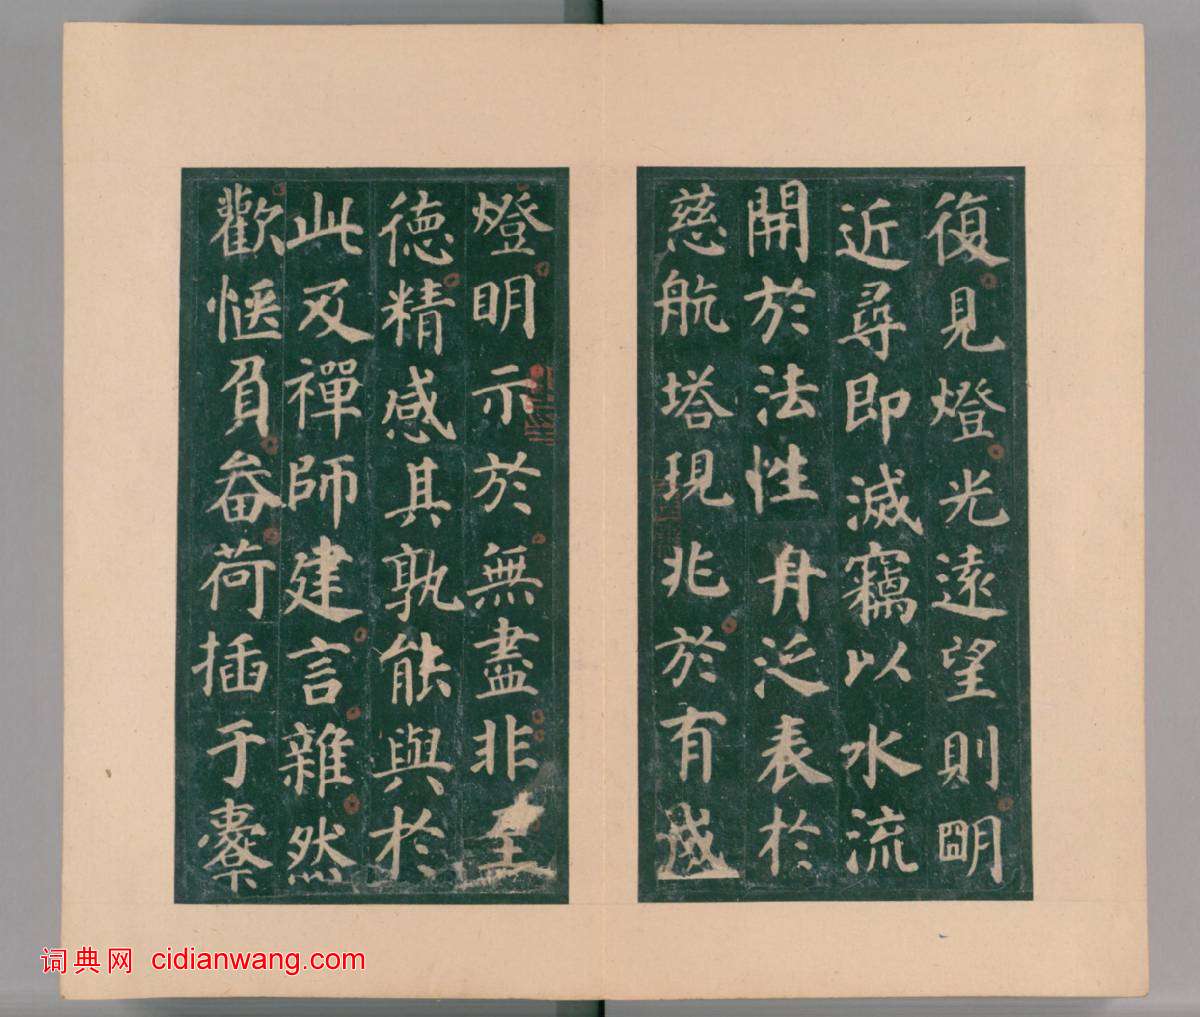 復見燈光遠望則明
近尋即滅竊以水流
開於法性舟泛表於
慈航塔現兆於有成
燈明示於無盡非至
德精感其孰能與於
此及禪師建言雜然
歡愜負畚荷插于橐
词典网 cidianwang.com